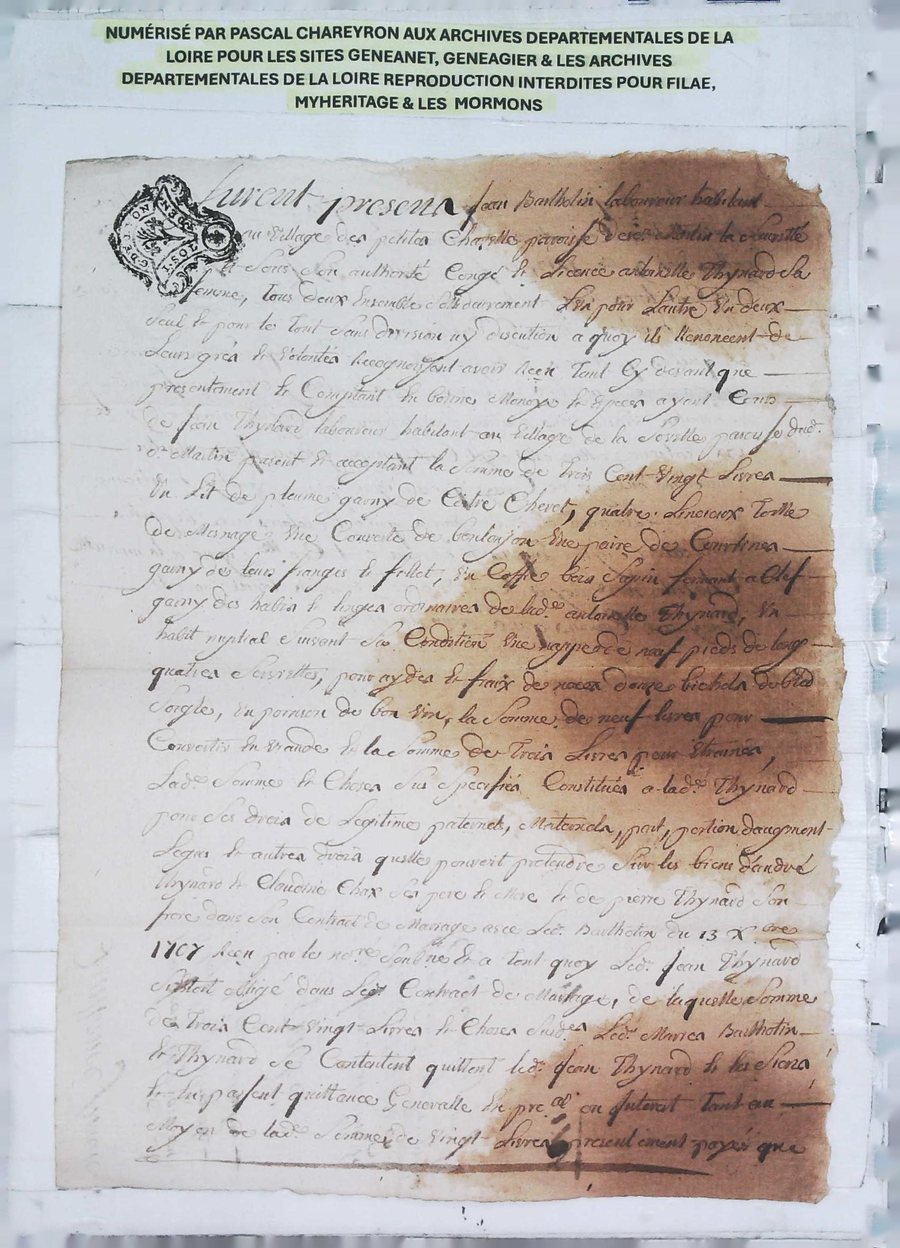 NUMÉRISÉ PAR PASCAL CHAREYRON AUX ARCHIVES DEPARTEMENTALES DE LA
LOIRE POUR LES SITES GENEANET, GENEAGIER & LES ARCHIVES
DEPARTEMENTALES DE LA LOIRE REPRODUCTION INTERDITES POUR FILAE,
MYHERITAGE & LES MORMONS
furent presents Jean Barlhotin laboureur habitant
au village des petites paroisse de Martin la
sous son authorité Congé et Licence antoinette Thynard sa
femme, Tous deux Ensemble solidairement L'un pour Lautre Un deux
Seul et pour le Tout Sans division ny discution a quoy ils Renoncent de
Leurs grés et Volontés Recognoissent avoir Receu Tant Cy devant que
presentement et Comptant En bonne Monoye et Especes ayant Cours
de Jean Thynard laboureur habitant au village de la paroisse dud.
St Martin present et acceptant la Somme de Trois Cent Vingt Livres
Un Lit de plume garny de Catre Chevet, quatre Linceuux Toille
de Menage Une Couverte de Une paire de Courtines
garny de leurs franges et fillet, Un Coffre bois Sapin fermant a Clef
garny des habits et linges ordinaires de lad. antoinette Thynard, Un
habit nuptial suivant Sa Condition Une nappe de neuf pieds de long
quatres Serviettes, pour aydes et fraix de noces douze bichets de bled
Soigle, Un poinson de bon Vin, la Somme de neuf livres pour
Convertir En Viande Et la Somme de Trois Livres pour Etraines,
Lad. Somme et Choses Sus Specifiés Constitués a lad. Thynard
pour Ses droits de Legitime paternels, Maternels, part, portion d'augment
Legats et autres droits quelle pouvoit pretendre Sur les biens d'andré
Thynard et Claudine Chax Ses pere et Mere et de pierre Thynard Son
frere dans Son Contract de Mariage avec Led. Barlhotin du 13 Xbre
1707 Receu par le nore Soubné Et a Tout quoy Led. Jean Thynard
S'estoit obligé dans Led. Contract de Mariage, de laquelle Somme
de Trois Cent Vingt Livres et Choses Susdes Led. Mariés Barlhotin
et Thynard Se Contentent quittent led. Jean Thynard et les Siens
et luy passent quittance Generalle En pre.al ou Interest Tant au
Moyen de lad. Somme de Vingt Livres presentement payés que